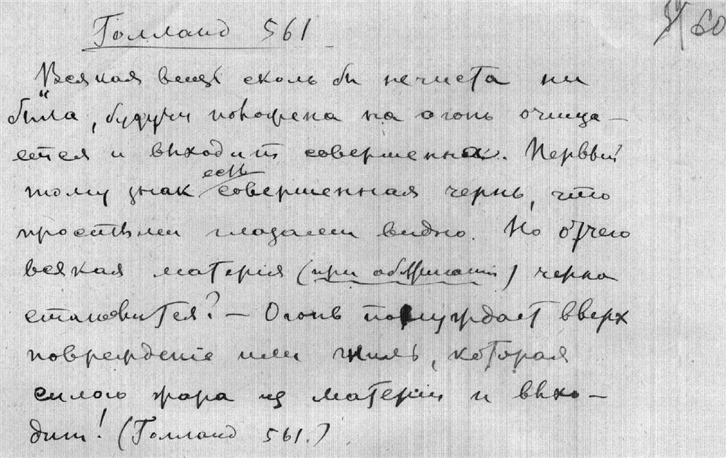 Голланд 561
60
Всякая вещь сколь бы нечиста ни
была, будучи положена на огонь очища-
ется и выходит совершенна. Первый
тому знак есть совершенная чернь, что
простыми глазами видно. Но отчего
всякая материя (при обжигании) черна
становится? – Огонь понуждает вверх
повреждение или гниль, которая
силою жара из материи и выхо-
дит! (Голланд 561.)